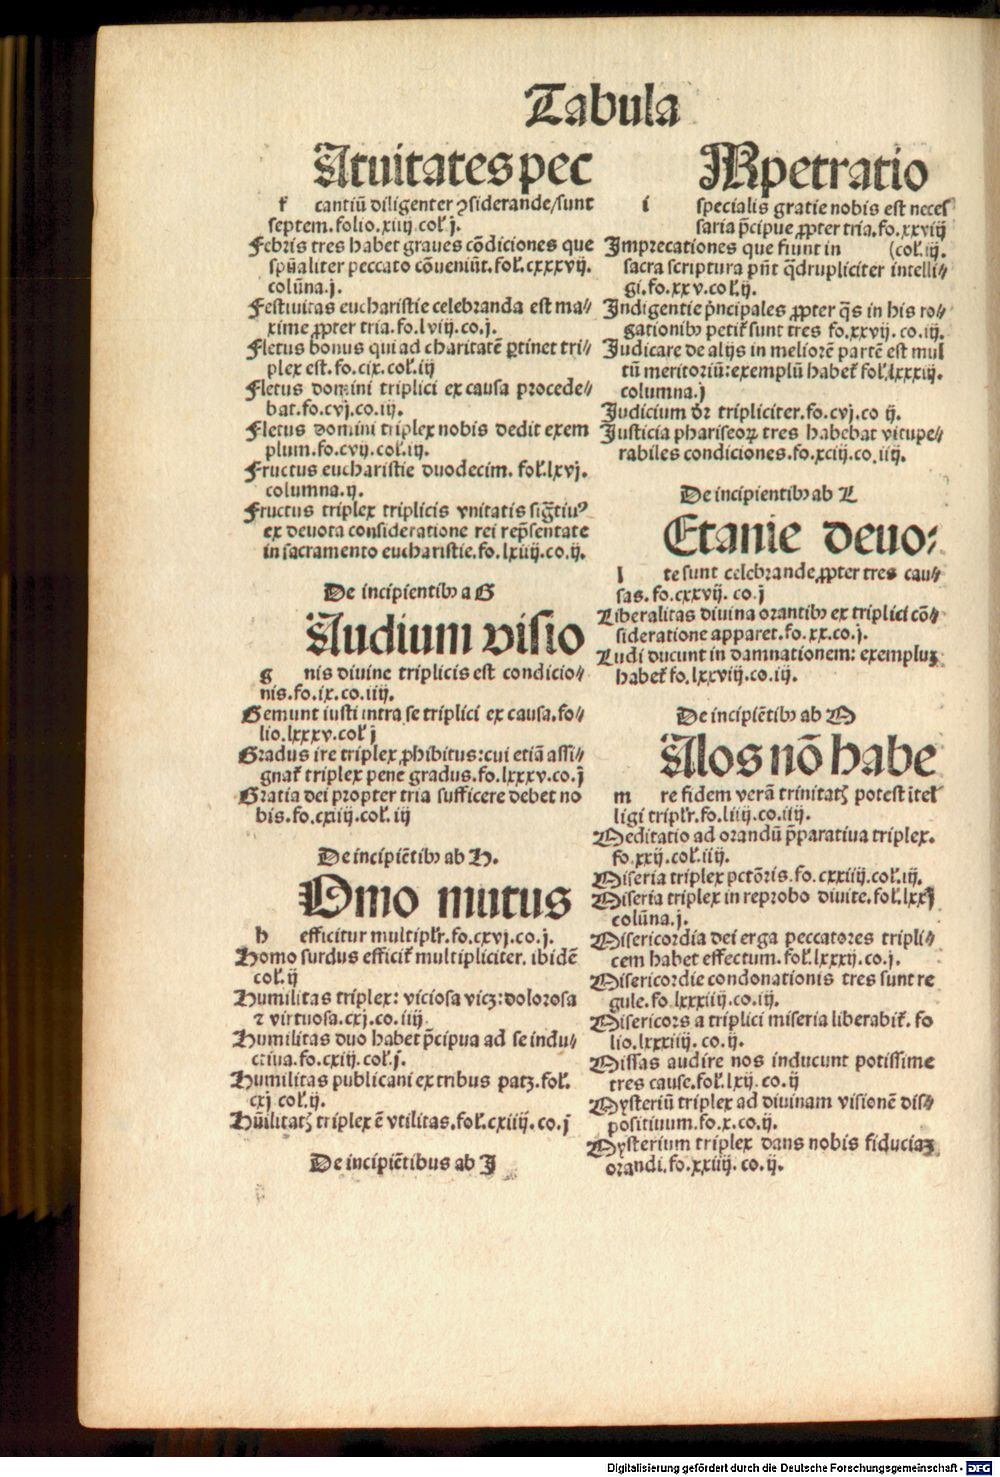 Tabula
Atuitates pec
f cantiũ diligenter ꝯsiderande/sunt
septem.folio.xiiij.col̕.j.
Febris tres habet graues cõdiciones que
spũaliter peccato cõueniũt.fol̕.cxxxvij.
colũna.j.
Festiuitas eucharistie celebranda est ma⸗
xime ꝓpter tria.fo.lviij.co.j.
Fletus bonus qui ad charitatẽ ꝑtinet tri⸗
plex est.fo.cix.col̕.iij
Fletus domini triplici ex causa procede⸗
bat.fo.cvj.co.iij.
Fletus domini triplex nobis dedit exem
plum.fo.cvij.col̕.iij.
Fructus eucharistie duodecim. fol̕.lxvj.
columna.ij.
Fructus triplex triplicis vnitatis sig̃tiuꝰ
ex deuota consideratione rei rep̃sentate
in sacramento eucharistie.fo.lxiiij.co.ij.
De incipientibꝫ a G
Audium visio
g nis diuine triplicis est condicio⸗
nis.fo.ix.co.iiij.
Gemunt iusti intra se triplici ex causa.fo⸗
lio.lxxxv.col̕ j
Gradus ire triplex ꝓhibitus:cui etiã assi⸗
gnat̃ triplex pene gradus.fo.lxxxv.co.j
Gratia dei propter tria sufficere debet no
bis.fo.cxiij.col̕. iij
De incipiẽtibꝫ ab H.
Omo mutus
h efficitur multipl̕r.fo.cxvj.co.j.
Homo surdus efficit̃ multipliciter. ibidẽ
col̕.ij
Humilitas triplex: viciosa vicꝫ:dolorosa
⁊ virtuosa.cxj.co.iiij
Humilitas duo habet p̃cipua ad se indu⸗
ctiua.fo.cxiij.col̕.j.
Humilitas publicani ex tribus patꝫ.fol̕.
cxj col̕.ij.
Hũilitatꝭ triplex ẽ vtilitas.fol̕.cxiiij.co.j
De incipiẽtibus ab I
Mpetratio
i specialis gratie nobis est neces
saria p̃cipue ꝓpter tria.fo.xxviij
Imprecationes que fiunt in (col̕.iij.
sacra scriptura pñt q̃drupliciter intelli⸗
gi.fo.xxv.col̕.ij.
Indigentie p̃ncipales ꝓpter q̃s in his ro⸗
gationibꝫ petit̃ sunt tres fo.xxvij.co.iij.
Iudicare de alijs in meliorẽ partẽ est mul
tũ meritoriũ:exemplũ habet̃ fol̕.lxxxiij.
columna.j
Iudicium dr̃ tripliciter.fo.cvj.co ij.
Iusticia phariseoꝝ tres habebat vitupe⸗
rabiles condiciones.fo.xciij.co.iiij.
De incipientibꝫ ab L
Etanie deuo⸗
l te sunt celebrande ꝓpter tres cau⸗
sas.fo.cxxvij. co.j
Liberalitas diuina orantibꝫ ex triplici cõ⸗
sideratione apparet.fo.xx.co.j.
Ludi ducunt in damnationem: exempluꝫ
habet̃ fo.lxxviij.co.iij.
De incipiẽtibꝫ ab M
Alos nõ habe
m re fidem verã trinitatꝭ potest ĩtel
ligi tripl̕r.fo.liiij.co.iiij.
Meditatio ad orandũ p̃paratiua triplex.
fo.xxij.col̕.iiij.
Miseria triplex pctõris.fo.cxxiiij.col̕.iij.
Miseria triplex in reprobo diuite.fol̕.lxxj
colũna.j.
Misericordia dei erga peccatores tripli⸗
cem habet effectum.fol̕.lxxxij.co.j.
Misericordie condonationis tres sunt re
gule.fo.lxxxiiij.co.iij.
Misericors a triplici miseria liberabit̃. fo
lio.lxxxiiij. co.ij.
Missas audire nos inducunt potissime
tres cause.fol̕.lxij.co.ij
Mysteriũ triplex ad diuinam visionẽ dis⸗
positiuum.fo.x.co.ij.
Mysterium triplex dans nobis fiduciaꝫ
orandi.fo.xxiiij. co.ij.
Digitalisierung gefördert durch die Deutsche Forschungsgemeinschaft - DFG